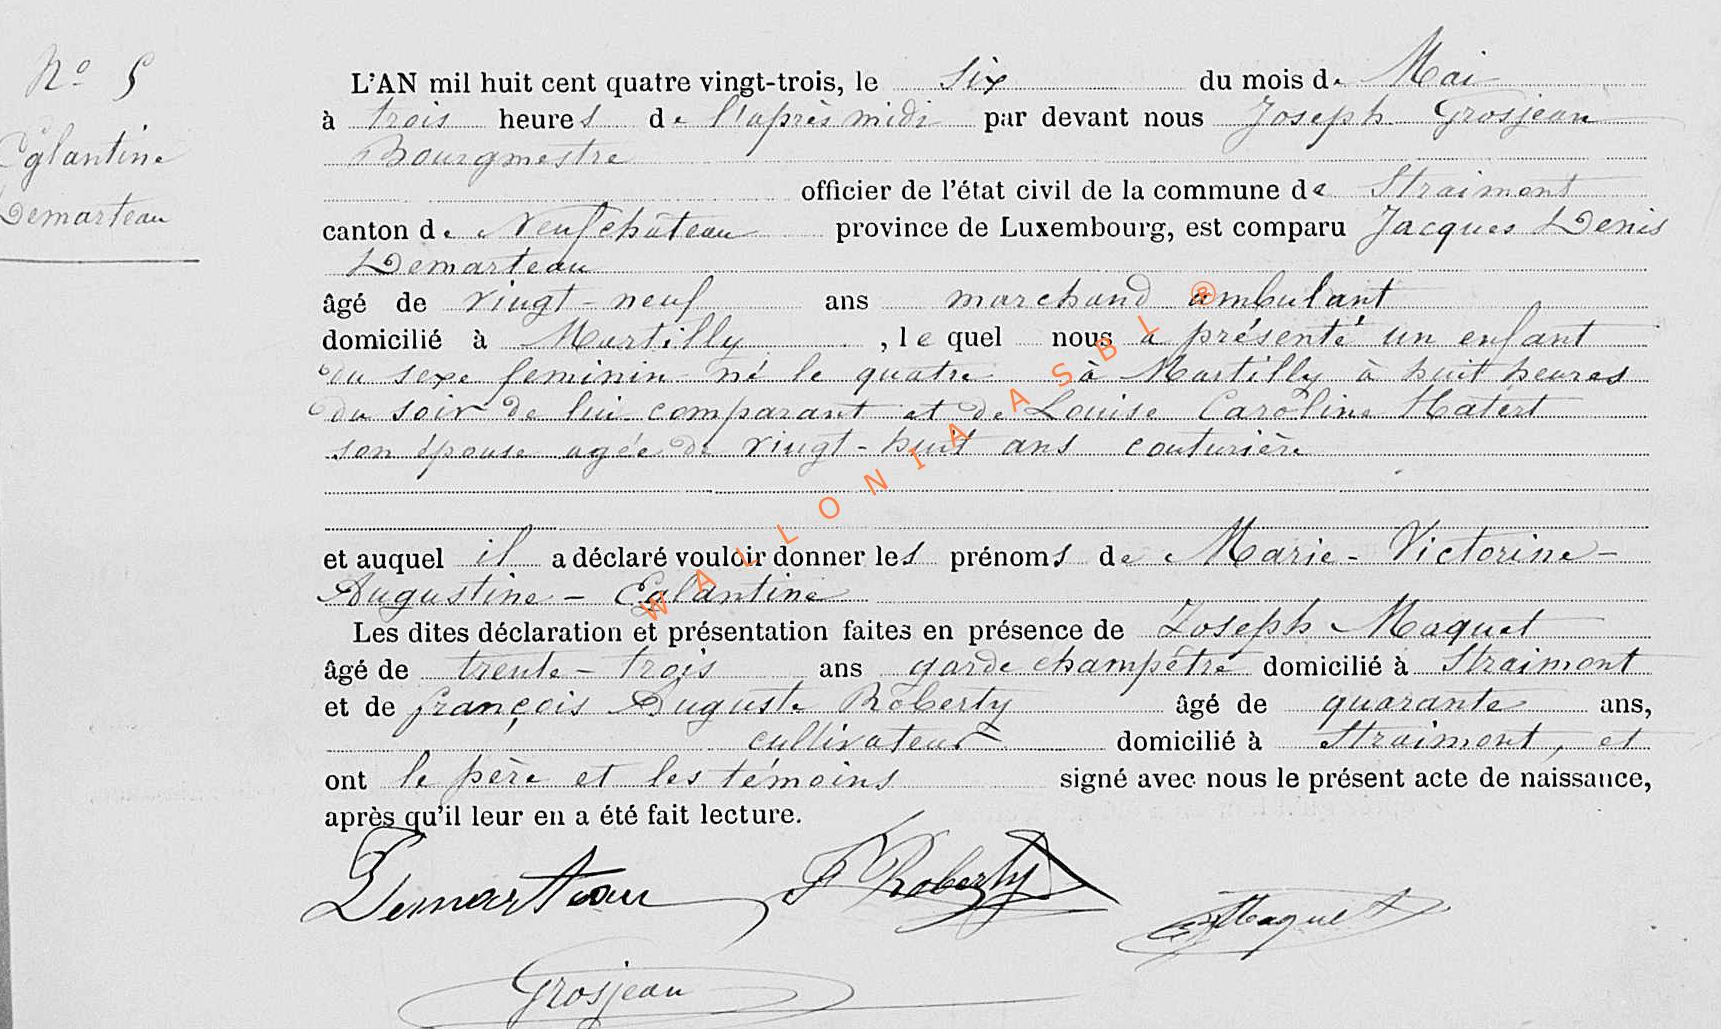 N° 5
Eglantine
Demarteau
L'AN mil huit cent quatre vingt-trois, le six du mois de Mai
à trois heures de l'après midi par devant nous Joseph Grosjean
Bourgmestre
officier de l'état civil de la commune de Straimont
canton de Neufchâteau province de Luxembourg, est comparu Jacques Denis
Demarteau
âgé de vingt-neuf ans marchand ambulant
domicilié à Martilly, lequel nous a présenté un enfant
du sexe feminin né le quatre à Martilly à huit heures
du soir de lui comparant et de Louise Caroline Hatert
son épouse agée de vingt-huit ans couturière
et auquel il a déclaré vouloir donner les prénoms de Marie-Victorine-
Augustine-Eglantine
Les dites déclaration et présentation faites en présence de Joseph Maquet
âgé de trente-trois ans garde champêtre domicilié à Straimont
et de françois Auguste Roberty âgé de quarante ans,
cultivateur domicilié à Straimont, et
ont le père et les témoins signé avec nous le présent acte de naissance,
après qu'il leur en a été fait lecture.
Demarteau F Roberty Maquet
Grosjean
WALLONIA ASBL ®